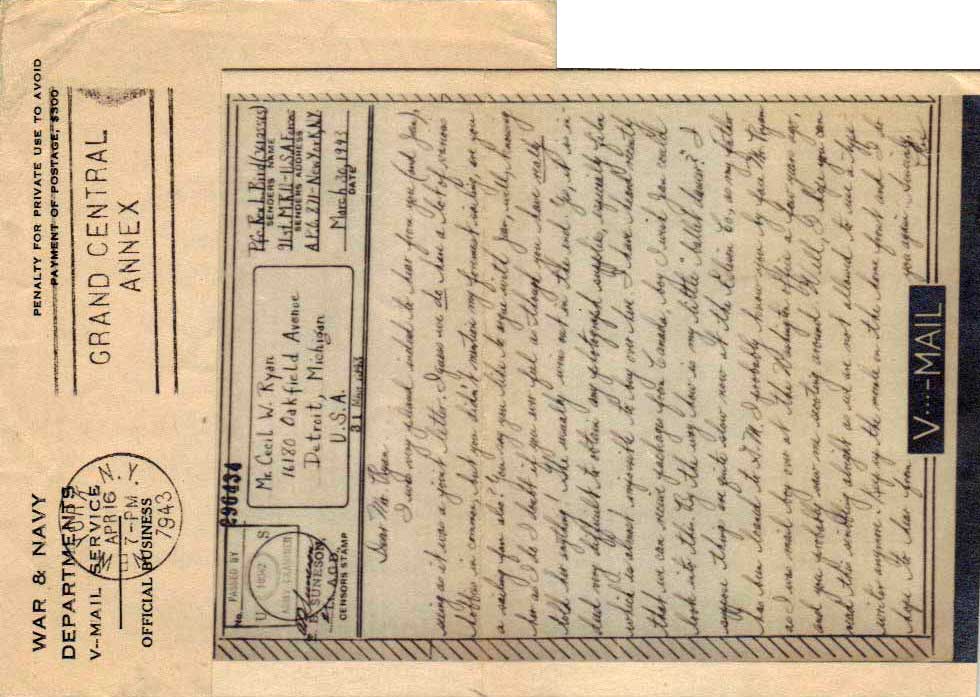 WAR & NAVY
DEPARTMENTS
V--MAIL SERVICE
OFFICIAL BUSINESS
NEW YORK, N.Y.
APR 16
7-PM
1943
PENALTY FOR PRIVATE USE TO AVOID
PAYMENT OF POSTAGE, $300
GRAND CENTRAL
ANNEX
No.
PASSED BY
U S
ARMY EXAMINER
SUNESON
CENSORS STAMP
Mr. Cecil W. Ryan
16180 Oakfield Avenue
Detroit, Michigan
U.S.A.
SENDERS NAME
SENDERS ADDRESS
A.P.O. 871-New York, N.Y.
March 30, 1943
DATE
Dear Mr. Ryan:
I was very pleased indeed to hear from you (and Jean),
seeing as it was a joint letter. I guess we do have a lot of various
hobbies in common, but you didn't mention my foremost-sailing are you
a sailing fan also? You say you like to argue with Jean, well, knowing
her as I do I doubt if you ever feel as though you have really
told her anything! She usually wins out in the end. Yes, it is in-
deed very difficult to obtain any photograph supplies, especially film
which is almost impossible to buy over here. I have heard recently
that we can receive packages from Canada, boy I wish Jean could
look into this. By the way how is my little "ballet dancer"? I
suppose things are quite slow now at the Union Co., as my father
has been leased to G.M. I probably know you by face Mr. Ryan
as I was mail boy over at the Washington office a few years ago,
and you probably saw me scooting around. Well, I hope you can
read this writing alright as we are not allowed to use a type-
writer anymore. Keep up the morale on the home front and I do
hope to hear from you again. Sincerely,
V...-MAIL